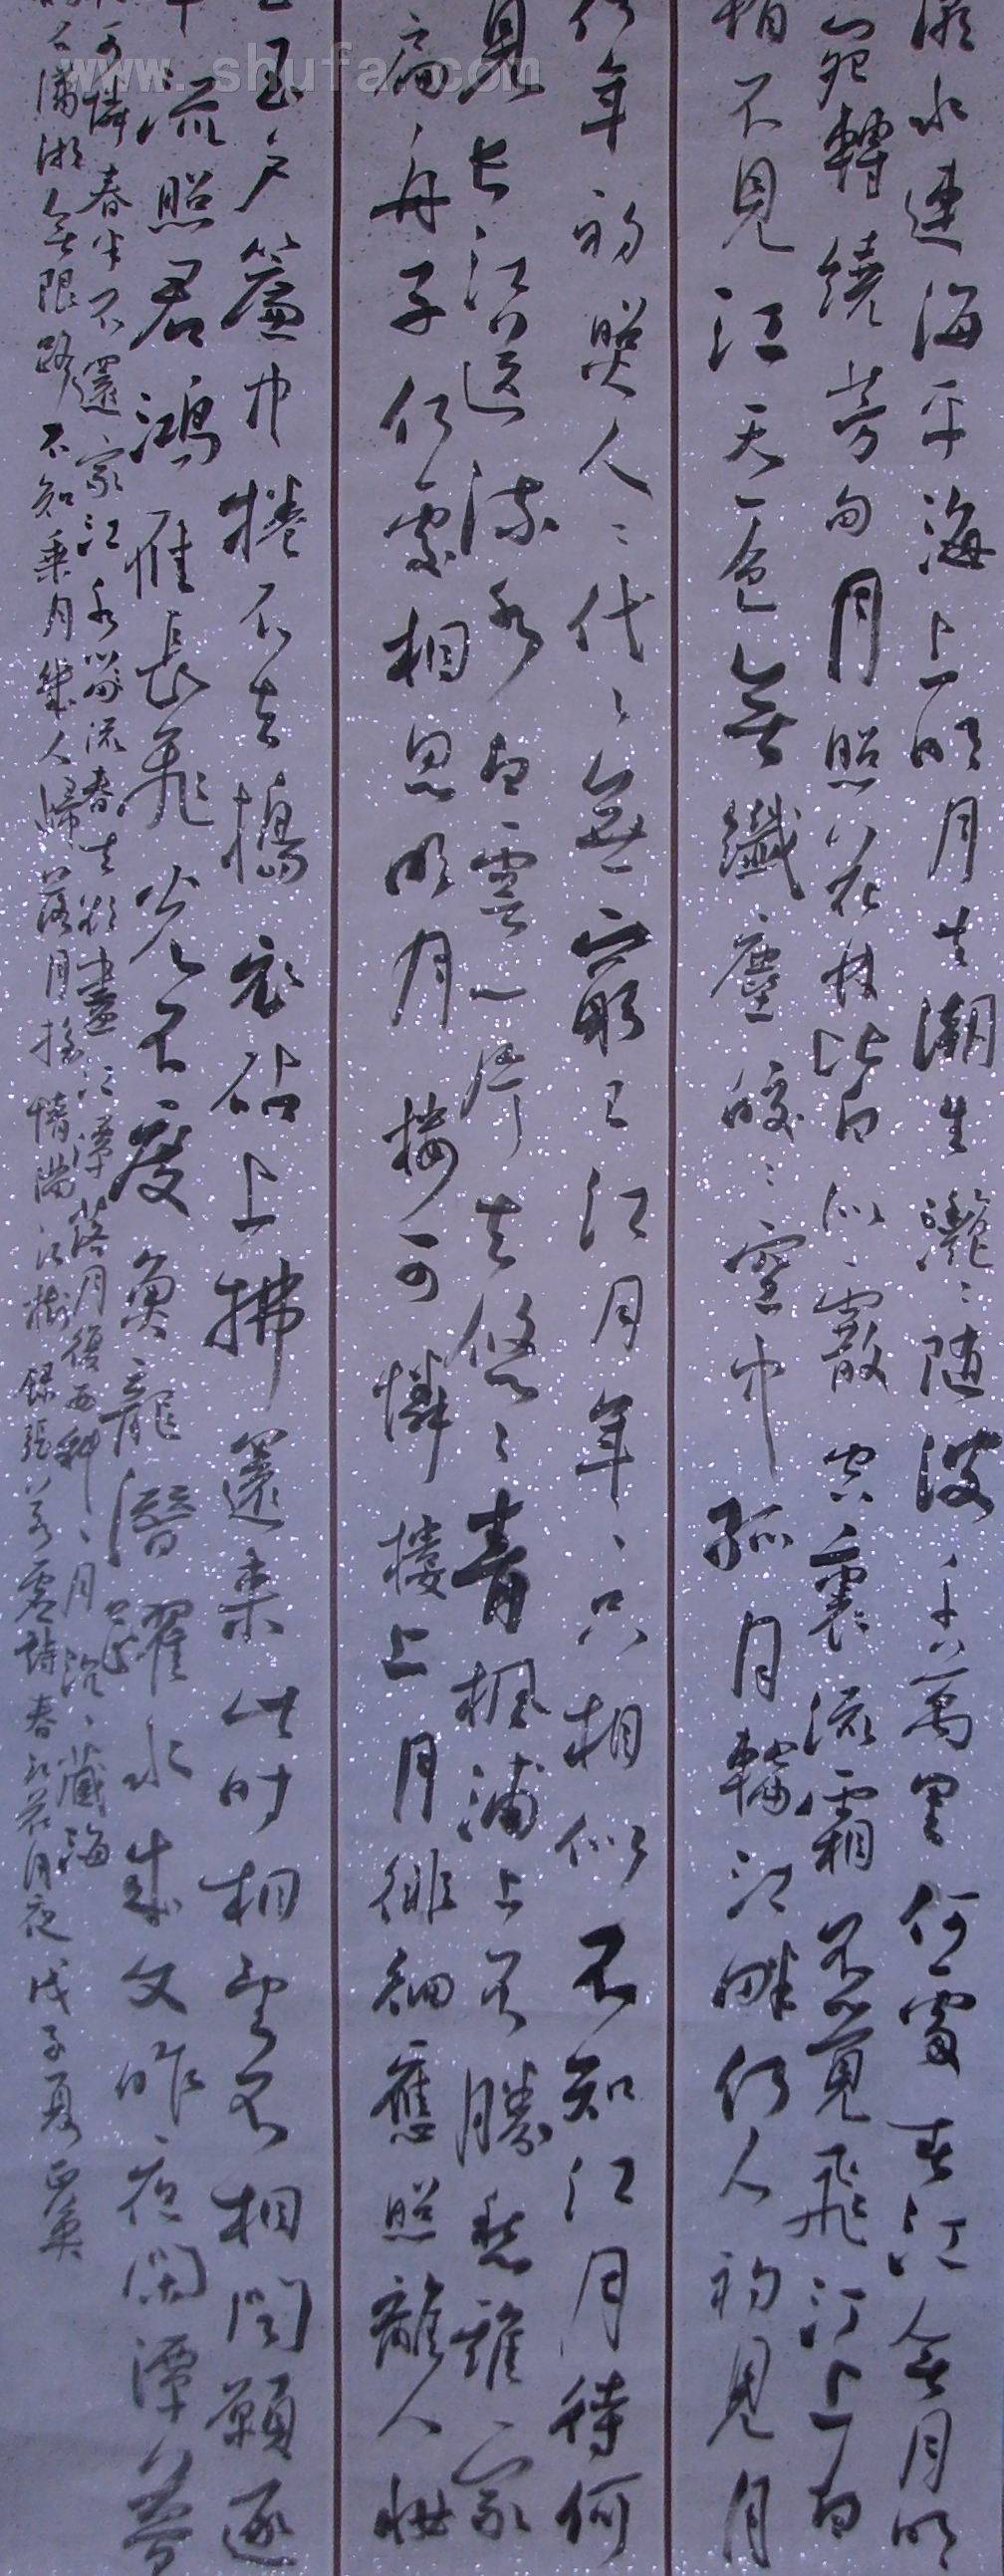 潮水連海平海上明月共潮生灩〻随波千萬里何處春江無月明
宛轉繞芳甸月照花林皆似霰空裏流霜不覺飛汀上白
看不見江天一色無纖塵皎〻空中孤月輪江畔何人初見月
何年初照人〻代〻無窮已江月年〻只相似不知江月待何
見長江送流水白雲一片去悠〻青楓浦上不勝愁誰家
扁舟子何處相思明月樓可憐樓上月徘徊應照離人妝
玉户簾中捲不去擣衣砧上拂還來此時相望不相聞願逐
華流照君鴻雁長飛光不度魚龍潛躍水成文昨夜閑潭夢
可憐春半不還家江水流春去欲盡江潭落月復西斜〻月沉〻藏海
石瀟湘無限路不知乘月幾人歸落月搖情滿江樹 錄張若虛詩春江花月夜 戊子夏 正英
www.shufa.com